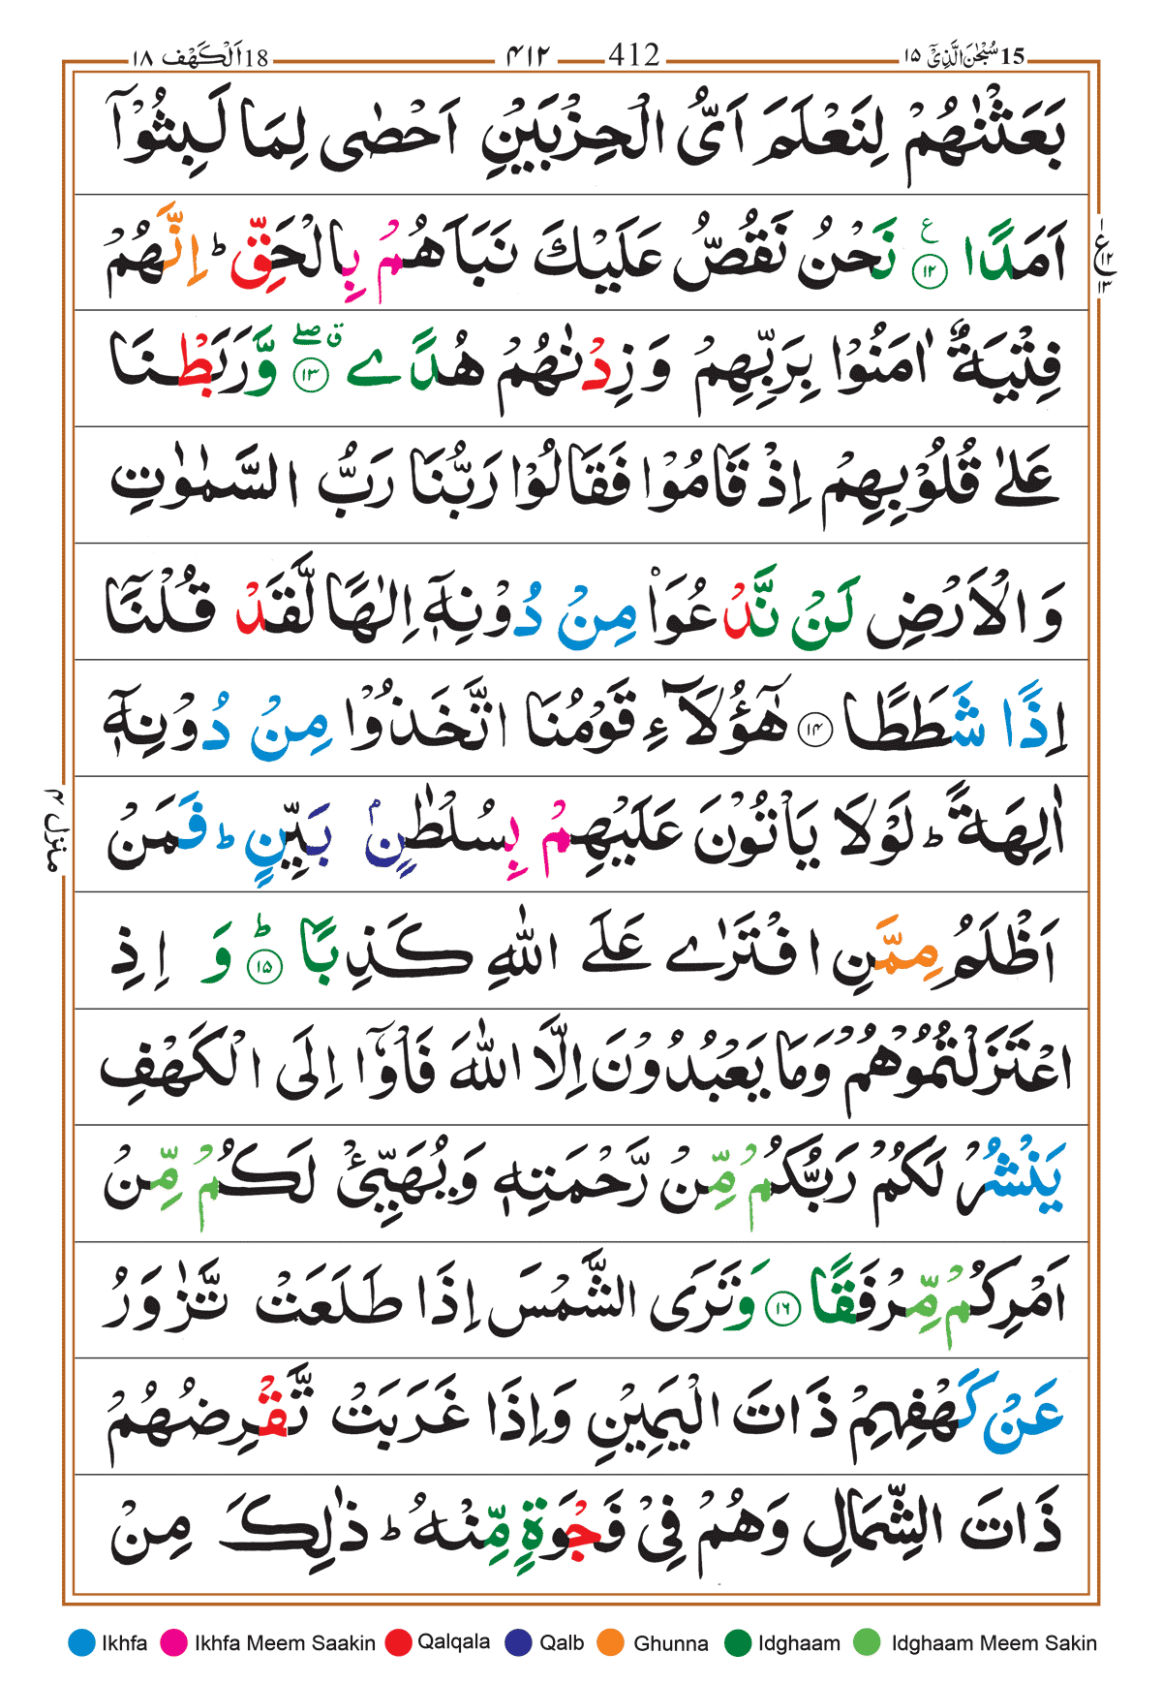 15 سُبْحٰنَ الَّذِیْۤ ۱۵ 412 ۴۱۲ 18 اَلْكَهْف ۱۸
بَعَثْنٰهُمْ لِنَعْلَمَ اَیُّ الْحِزْبَیْنِ اَحْصٰى لِمَا لَبِثُوْۤا
اَمَدًا ۱۲ ع نَحْنُ نَقُصُّ عَلَیْكَ نَبَاَهُمْ بِالْحَقِّ ؕ اِنَّهُمْ
ع ۱ ۱۲ ۱۳
فِتْیَةٌ اٰمَنُوْا بِرَبِّهِمْ وَ زِدْنٰهُمْ هُدًے ۱۳ ق صلے وَّ رَبَطْنَا
عَلٰى قُلُوْبِهِمْ اِذْ قَامُوْا فَقَالُوْا رَبُّنَا رَبُّ السَّمٰوٰتِ
وَ الْاَرْضِ لَنْ نَّدْعُوَاۡ مِنْ دُوْنِهٖۤ اِلٰهًا لَّقَدْ قُلْنَاۤ
اِذًا شَطَطًا ۱۴ هٰۤؤُلَآءِ قَوْمُنَا اتَّخَذُوْا مِنْ دُوْنِهٖۤ
اٰلِهَةً ؕ لَوْلَا یَاْتُوْنَ عَلَیْهِمْ بِسُلْطٰنٍۭ بَیِّنٍ ؕ فَمَنْ
منزل ۴
اَظْلَمُ مِمَّنِ افْتَرٰے عَلَے اللّٰهِ كَذِبًا ؕ ۱۵ وَ اِذِ
اعْتَزَلْتُمُوْهُمْ وَمَا یَعْبُدُوْنَ اِلَّا اللّٰهَ فَاْوٗۤا اِلَى الْكَهْفِ
یَنْشُرْ لَكُمْ رَبُّكُمْ مِّنْ رَّحْمَتِهٖ وَیُهَیِّئْ لَكُمْ مِّنْ
اَمْرِكُمْ مِّرْفَقًا ۱۶ وَتَرَى الشَّمْسَ اِذَا طَلَعَتْ تَّزٰوَرُ
عَنْ كَهْفِهِمْ ذَاتَ الْیَمِیْنِ وَاِذَا غَرَبَتْ تَّقْرِضُهُمْ
ذَاتَ الشِّمَالِ وَهُمْ فِیْ فَجْوَةٍ مِّنْهُ ؕ ذٰلِكَ مِنْ
Ikhfa Ikhfa Meem Saakin Qalqala Qalb Ghunna Idghaam Idghaam Meem Sakin